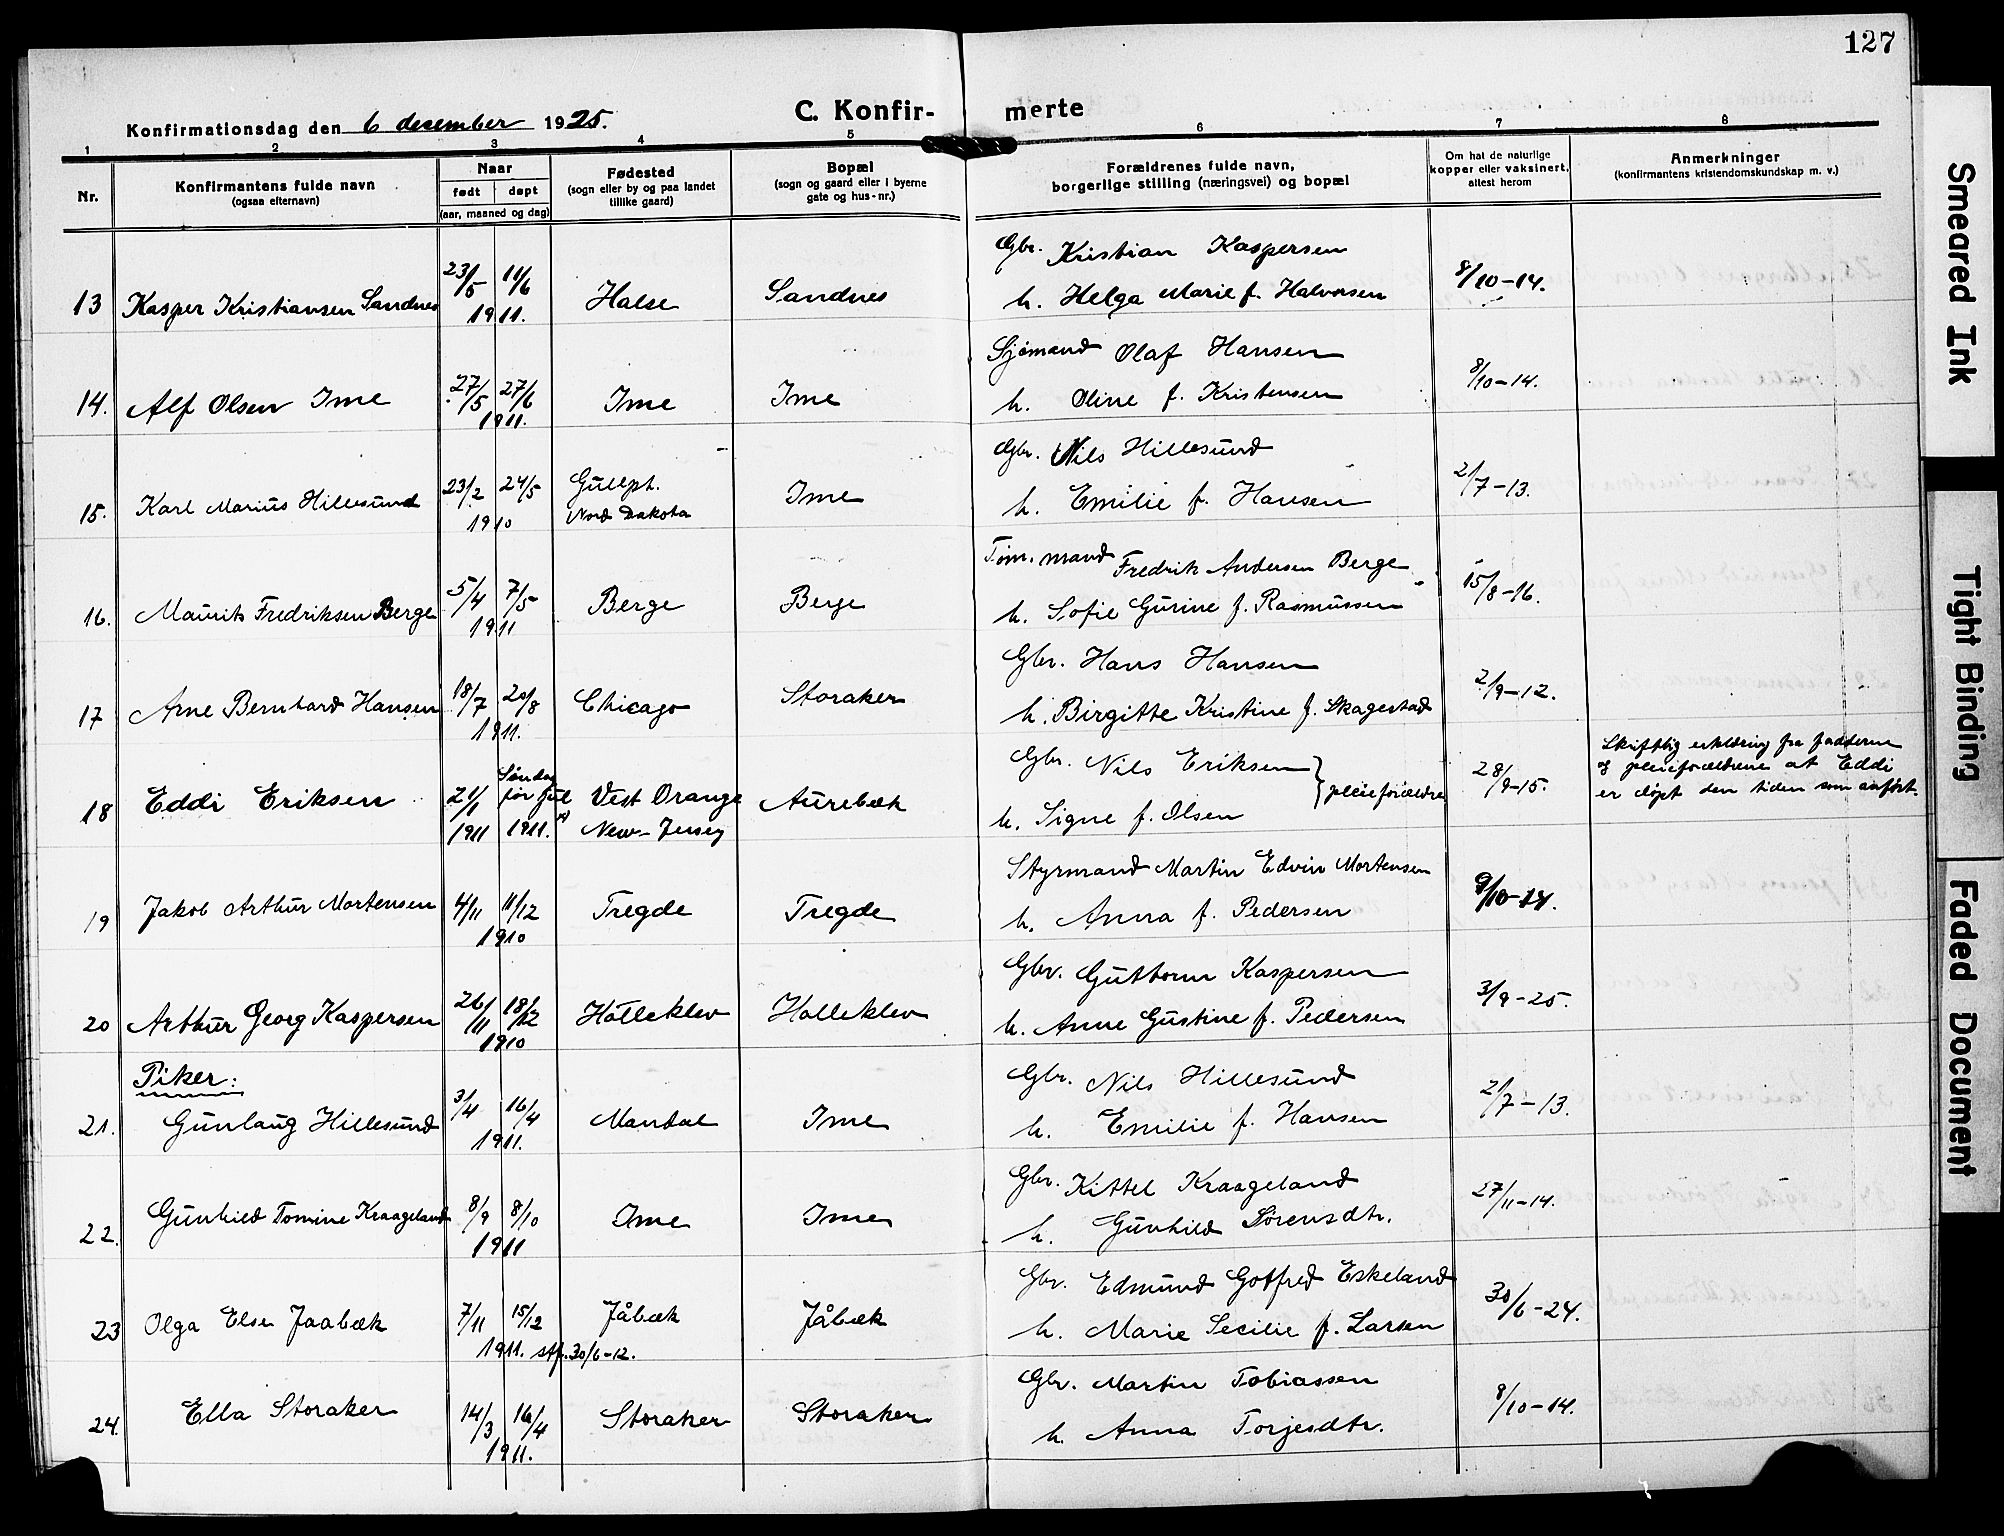 127
C. Konfir- merte
Konfirmationsdag den 6 desember 1925.
1 2 3 4 5 6 7 8
Nr.
Konfirmantens fulde navn
(ogsaa efternavn)
Naar
født døpt
(aar, maaned og dag)
Fødested
(sogn eller by og paa landet
tillike gaard)
Bopæl
(sogn og gaard eller i byerne
gate og hus-nr.)
Forældrenes fulde navn,
borgerlige stilling (næringsvei) og bopæl
Om hat de naturlige
kopper eller vaksinert,
attest herom
Anmerkninger
(konfirmantens kristendomskundskap m. v.)
13 Kasper Kristiansen Sandnes 23/5 11/6 1911. Halse Sandnes
Gbr. Kristian Kaspersen
h. Helga Marie f. Halvorsen
8/10-14.
14. Alf Olsen Ime 27/5 27/6 1911. Ime Ime
Sjømand Olaf Hansen
h. Oline f. Kristensen
8/10-14.
15. Karl Marius Hillesund 23/2 24/5 1910
Nord Dakota
Ime
Gbr. Nils Hillesund
h. Emilie f. Hansen
2/7-13.
16. Maurits Fredriksen Berge 5/4 7/5 1911 Berge Berge
Tøm.mand Fredrik Andersen Berge
h. Sofie Gurine f. Rasmussen
15/8-16.
17 Arne Bernhard Hansen 18/7 20/8 1911. Chicago Storaker
Gbr. Hans Hansen
h. Birgitte Kristine f. Skagestad
2/9-12.
18 Eddi Eriksen 21/1 1911
Søndag
før jul
1911.
Vest Orange
New-Jersey
Aurebæk
Gbr. Nils Eriksen
h. Signe f. Olsen
} pleieforældre
28/9-15.
Skriftlig erklæring fra fadderne
og pleieforældrene at Eddi
er døpt den tiden som anført.
19 Jakob Arthur Mortensen 4/11 11/12 1910 Tregde Tregde
Styrmand Martin Edvin Mortensen
h. Anna f. Pedersen
9/10-14.
20 Arthur Georg Kaspersen 26/11 18/12 1910 Holleklev Holleklev
Gbr. Guttorm Kaspersen
h. Anne Gustine f. Pedersen
3/9-25.
Piker:
21. Gunlaug Hillesund 3/4 16/4 1911. Mandal Ime
Gbr. Nils Hillesund
h. Emilie f. Hansen
2/7-13.
22. Gunhild Tomine Kraageland 8/9 8/10 1911 Ime Ime
Gbr. Kittel Kraageland
h. Gunhild Sørensdtr.
27/11-14.
23 Olga Else Jaabæk 7/11 15/12 1911. stf. 30/6-12. Jåbæk Jåbæk
Gbr. Edmund Gotfred Eskeland
h. Marie Secilie f. Larsen
30/6-24.
24. Ella Storaker 14/3 16/4 1911. Storaker Storaker
Gbr. Martin Tobiassen
h. Anna Torjesdtr.
8/10-14.
Smeared Ink
Tight Binding
Faded Document